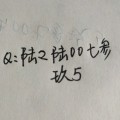 Q:陆2陆00七参
玖5